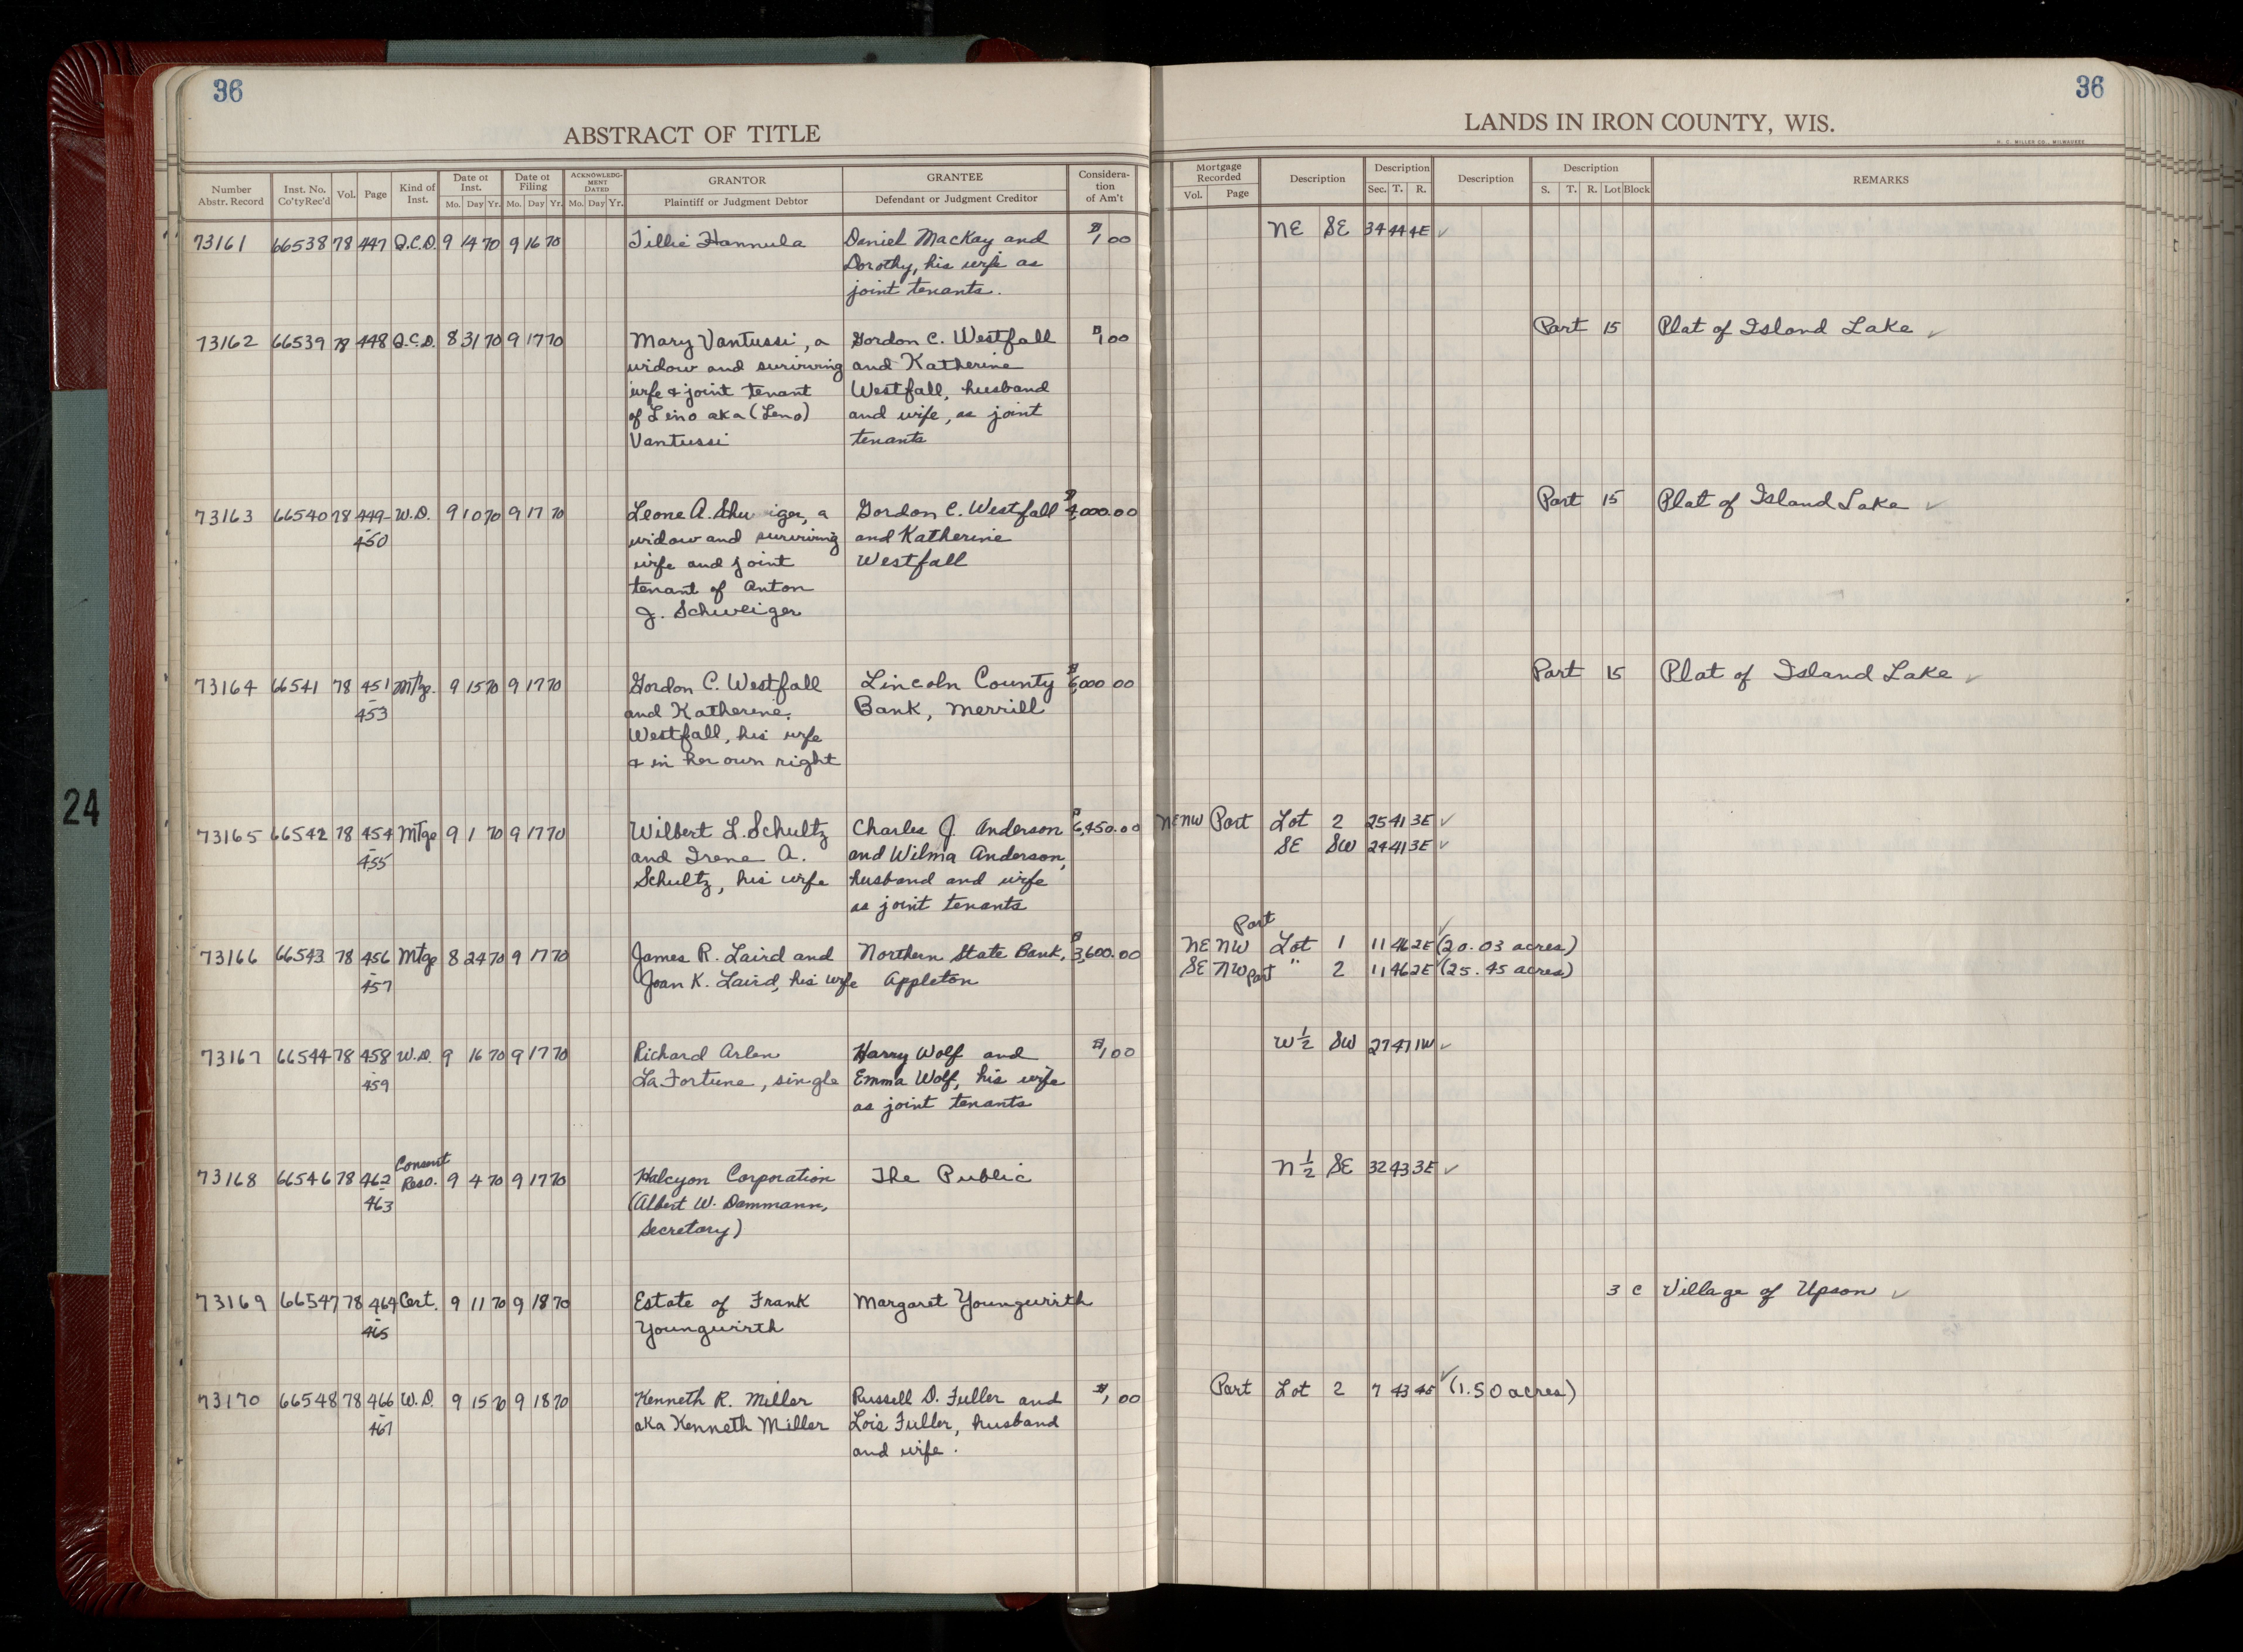 36
ABSTRACT OF TITLE
Number Abstr. Record | Inst. No. Co'ty Rec'd | Vol. | Page | Kind of Inst. | Date of Inst. Mo. Day Yr. | Date of Filing Mo. Day Yr. | ACKNOWLEDGMENT DATED Mo. Day Yr. | GRANTOR Plaintiff or Judgment Debtor | GRANTEE Defendant or Judgment Creditor | Consideration of Am't
73161 66538 78 447 Q.C.D. 9 14 70 9 16 70 Tillie Hannula Daniel MacKay and $1 00
Dorothy, his wife as
joint tenants.
73162 66539 78 448 Q.C.D. 8 31 70 9 17 70 Mary Vantussi, a Gordon C. Westfall $1 00
widow and surviving and Katherine
wife & joint tenant Westfall, husband
of Leino aka (Leno) and wife, as joint
Vantussi tenants
73163 66540 78 449- W.D. 9 10 70 9 17 70 Leone A. Schweiger, a Gordon C. Westfall $4,000.00
450 widow and surviving and Katherine
wife and joint Westfall
tenant of Anton
J. Schweiger
73164 66541 78 451 Mtge. 9 15 70 9 17 70 Gordon C. Westfall Lincoln County $6,000 00
- 453 and Katherine Bank, Merrill
Westfall, his wife
& in her own right
73165 66542 78 454 Mtge 9 1 70 9 17 70 Wilbert L. Schultz Charles J. Anderson $6,450.00
- 455 and Irene A. and Wilma Anderson,
Schultz, his wife husband and wife
as joint tenants
73166 66543 78 456 Mtge 8 24 70 9 17 70 James R. Laird and Northern State Bank, $3,600.00
- 457 Joan K. Laird, his wife Appleton
73167 66544 78 458 W.D. 9 16 70 9 17 70 Richard Arlen Harry Wolf and $1 00
- 459 LaFortune, single Emma Wolf, his wife
as joint tenants
Consent
73168 66546 78 462 Reso. 9 4 70 9 17 70 Halcyon Corporation The Public
- 463 (Albert W. Dammann,
Secretary)
73169 66547 78 464 Cert. 9 11 70 9 18 70 Estate of Frank Margaret Youngwirth
- 465 Youngwirth
73170 66548 78 466 W.D. 9 15 70 9 18 70 Kenneth R. Miller Russell D. Fuller and $1 00
- 467 aka Kenneth Miller Lois Fuller, husband
and wife.
24
36
LANDS IN IRON COUNTY, WIS.
H. C. MILLER CO., MILWAUKEE
Mortgage Recorded Vol. Page | Description | Description Sec. T. R. | Description | Description S. T. R. Lot Block | REMARKS
NE SE 34 44 4E ✓
Part 15 Plat of Island Lake ✓
Part 15 Plat of Island Lake ✓
Part 15 Plat of Island Lake ✓
NENW Part Lot 2 25 41 3E ✓
SE SW 24 41 3E ✓
Part
NE NW Lot 1 11 46 2E ✓ (20.03 acres)
SE NW Part " 2 11 46 2E ✓ (25.45 acres)
W ½ SW 27 47 1W ✓
N ½ SE 32 43 3E ✓
3 C Village of Upson ✓
Part Lot 2 7 43 4E ✓ (1.50 acres)